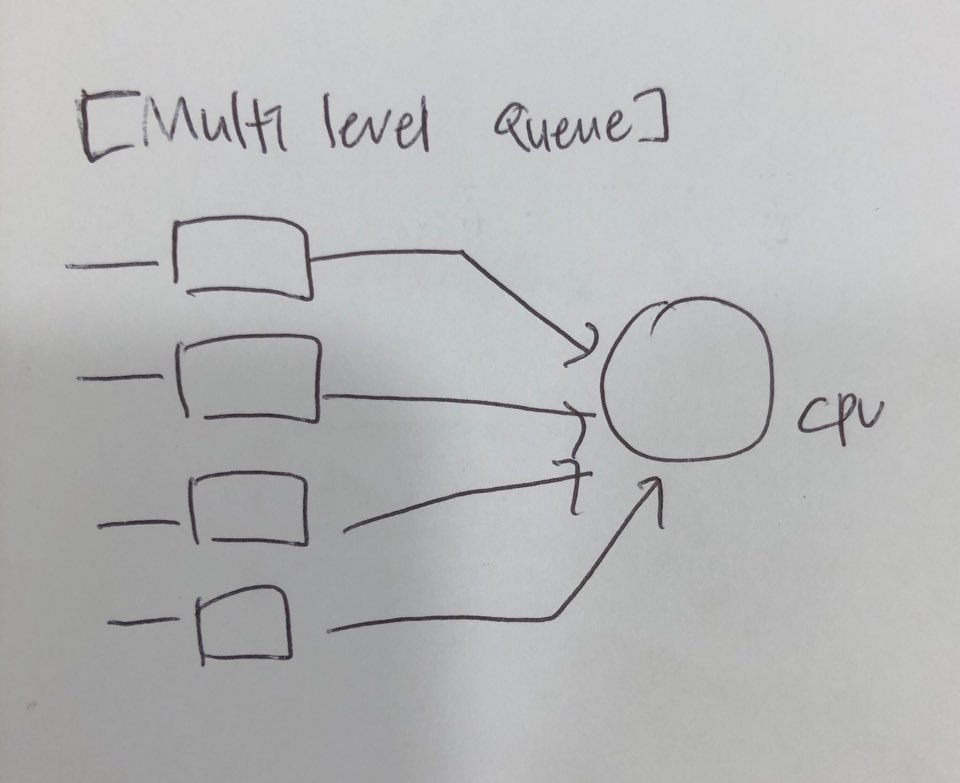 [Multi level Queue]
CPU